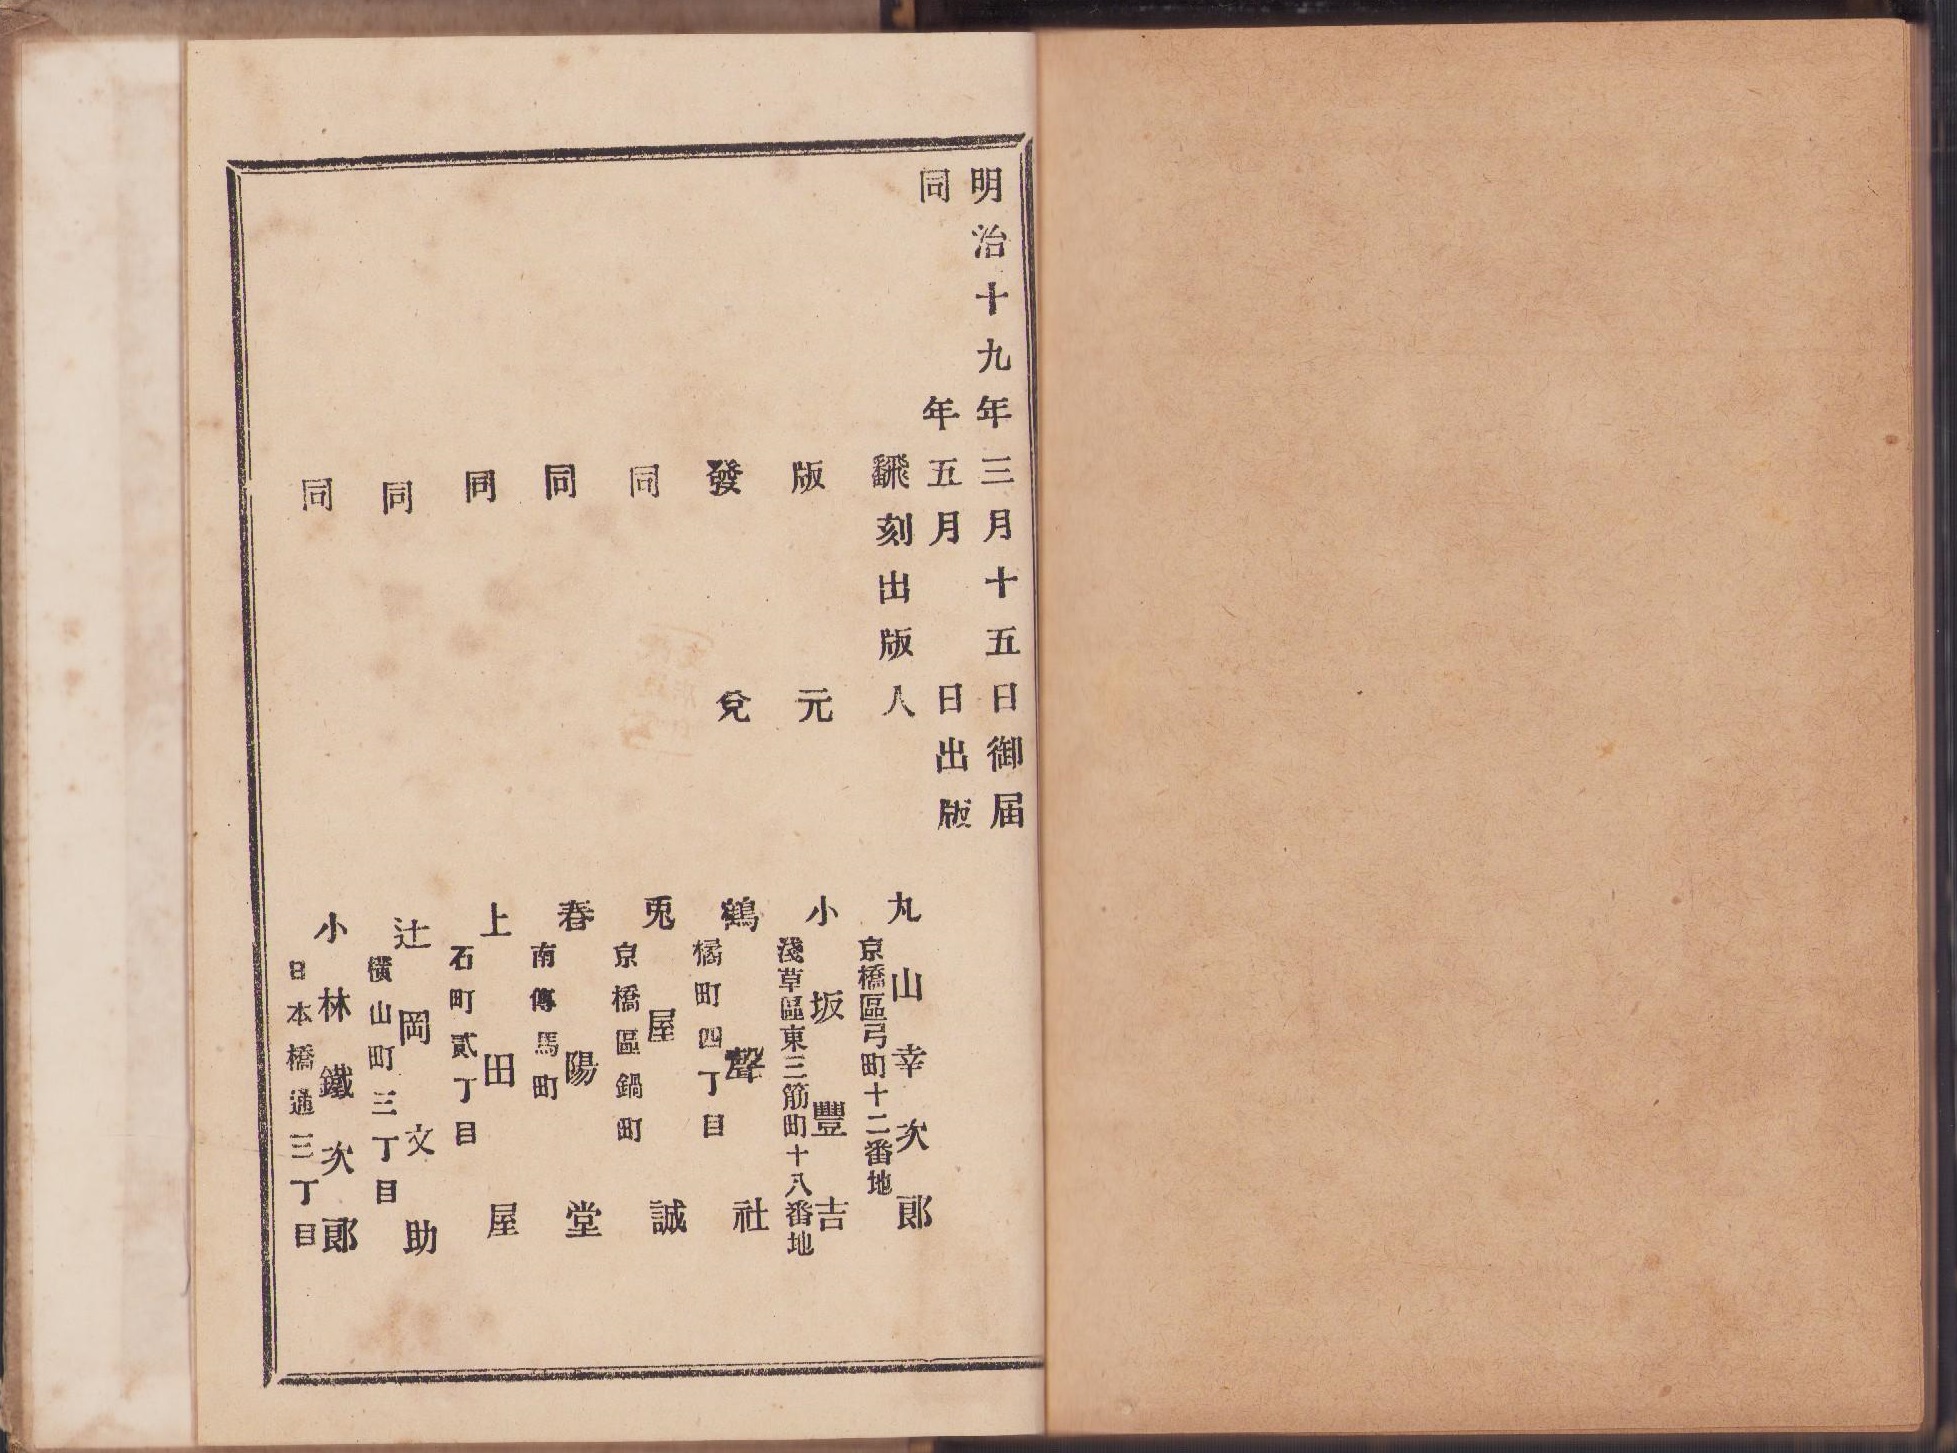 明治十九年三月十五日御届
同年五月 日出版
飜刻出版人 丸山幸次郎
京橋區弓町十二番地
版元 小坂豐吉
淺草區東三筋町十八番地
發兌 鶴聲社
橘町四丁目
同 兎屋誠
京橋區鍋町
同 春陽堂
南傳馬町
同 上田屋
石町貳丁目
同 辻岡文助
横山町三丁目
同 小林鐵次郎
日本橋通三丁目